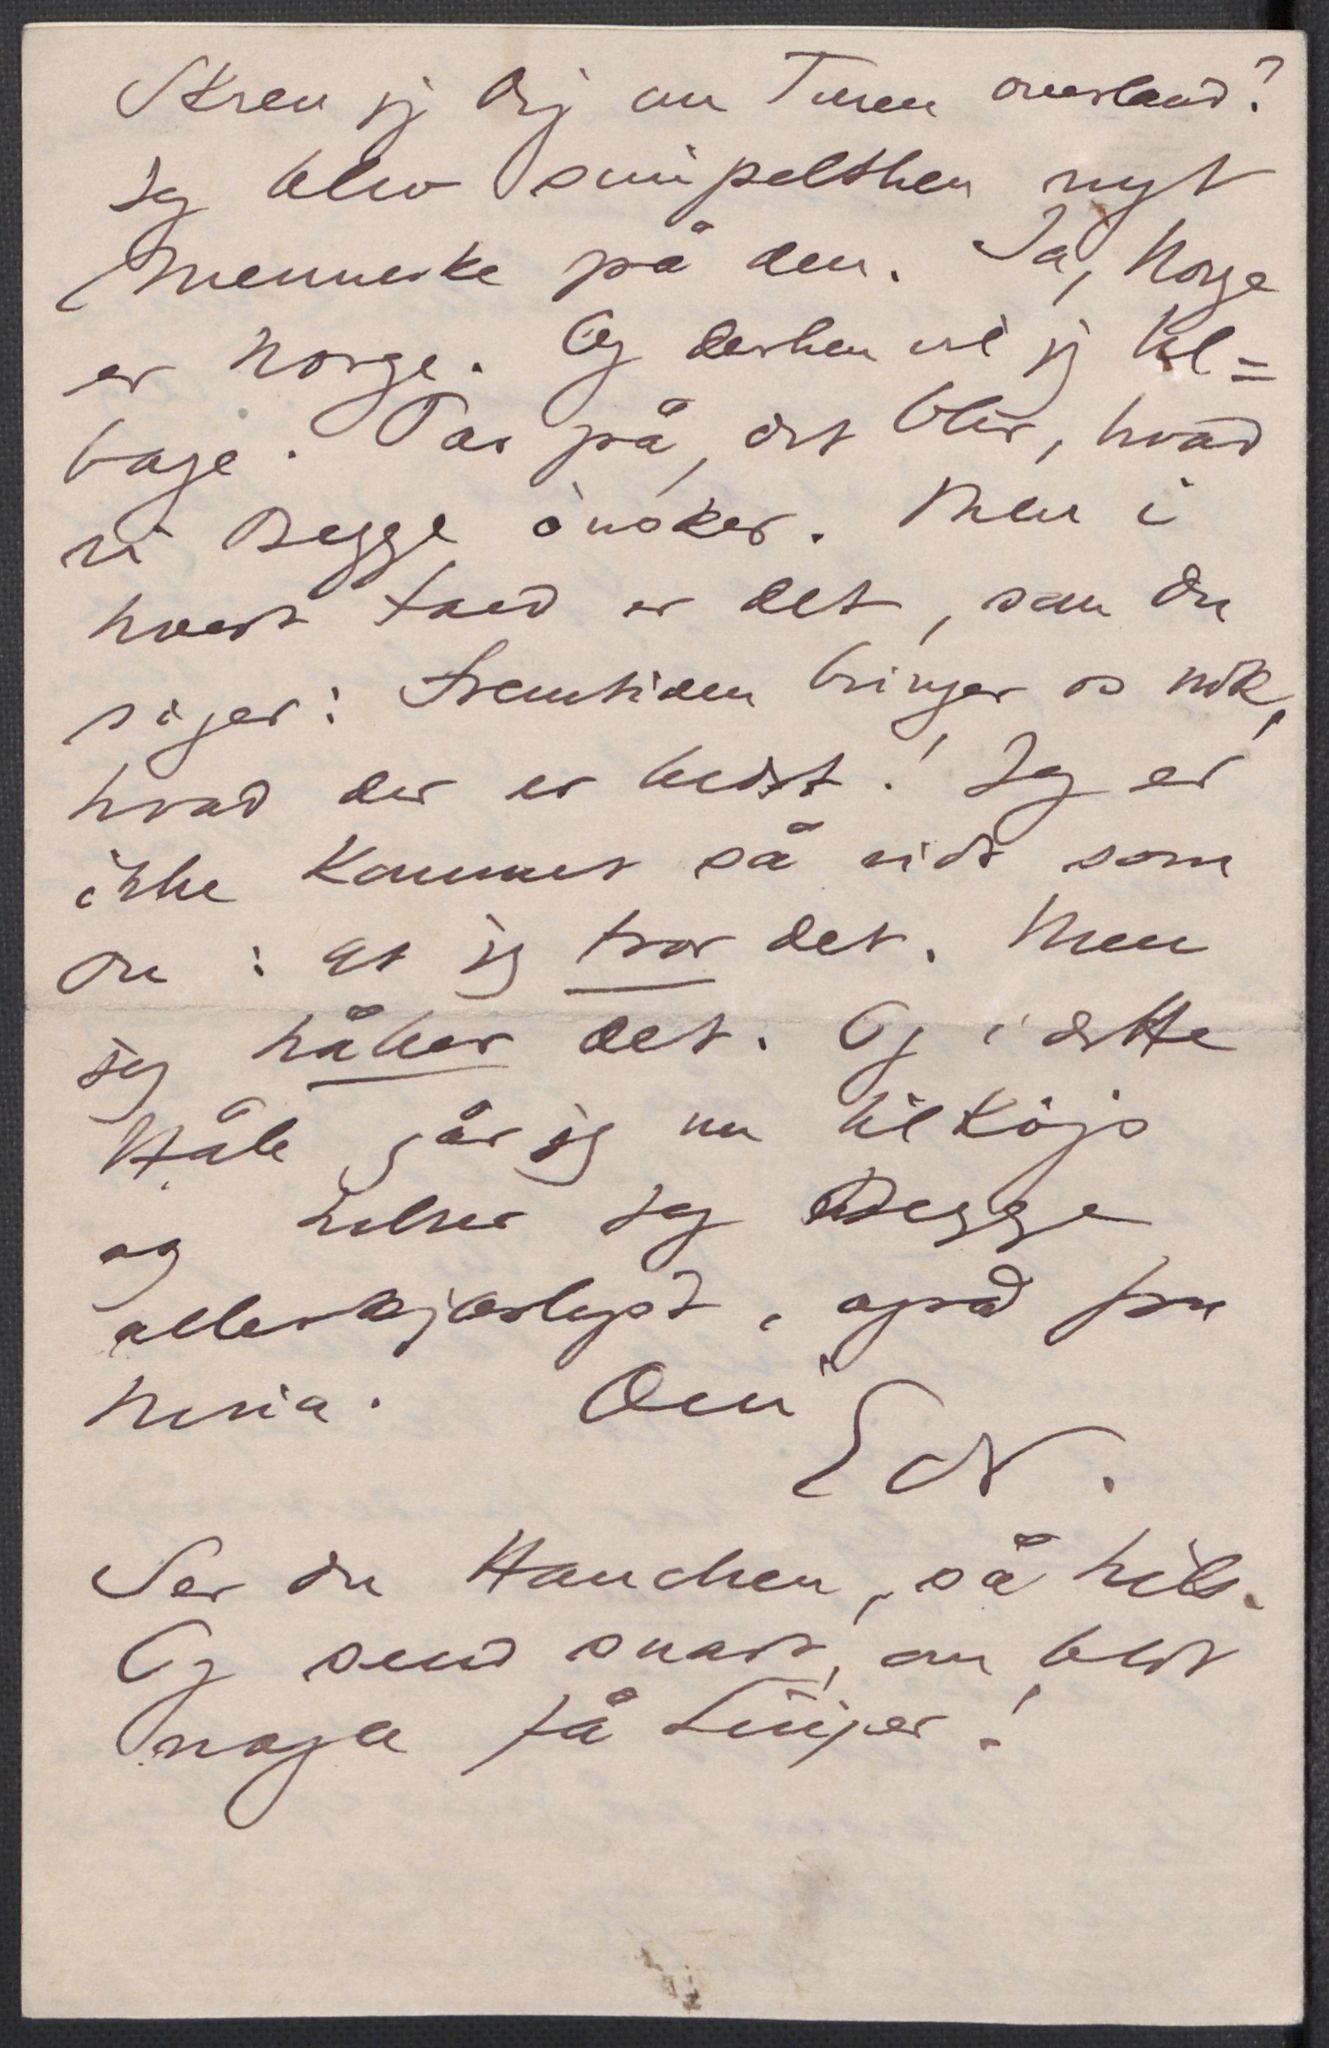 Skrev jeg Dig om Turen overland?
Jeg blev simpelthen nyt
Menneske på den. Ja, Norge
er Norge. Og derhen vil jeg til=
bage. Pas på, det blir, hvad
vi Begge önsker. Men i
hvert Fald er det, som Du
siger: Fremtiden bringer os nok,
hvad der er bedst! Jeg er
ikke kommet så vidt som
Du: at jeg tror det. Men
jeg håber det. Og i dette
Håb går jeg nu tilköjs
og hilser jeg Begge
allerkjærligst, også fra
Nina. Din
Edv.
Ser du Hanchen, så hils.
Og send snart, om blot
nogle få Linjer!